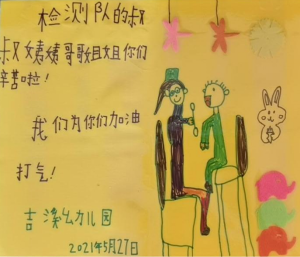 检测队的叔
叔姨姨哥哥姐姐你们
辛苦啦！
我们为你们加油
打气！
吉溪幼儿园
2021年5月27日